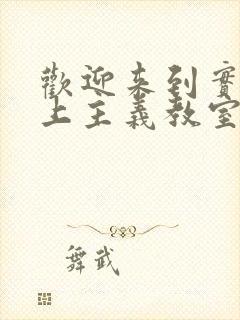 歡迎來到實
上主義教室
舞武